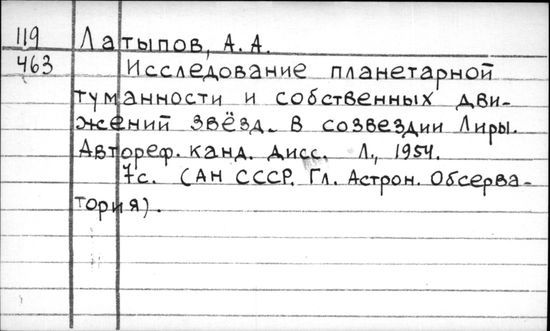 119 Латыпов, А. А.
463 Исследование планетарной
туманности и собственных дви-
жений звёзд. в созвездии Лиры.
Автореф. канд. дисс. Л., 1954.
7с. (АН СССР. Гл. Астрон. Обсерва-
тория).